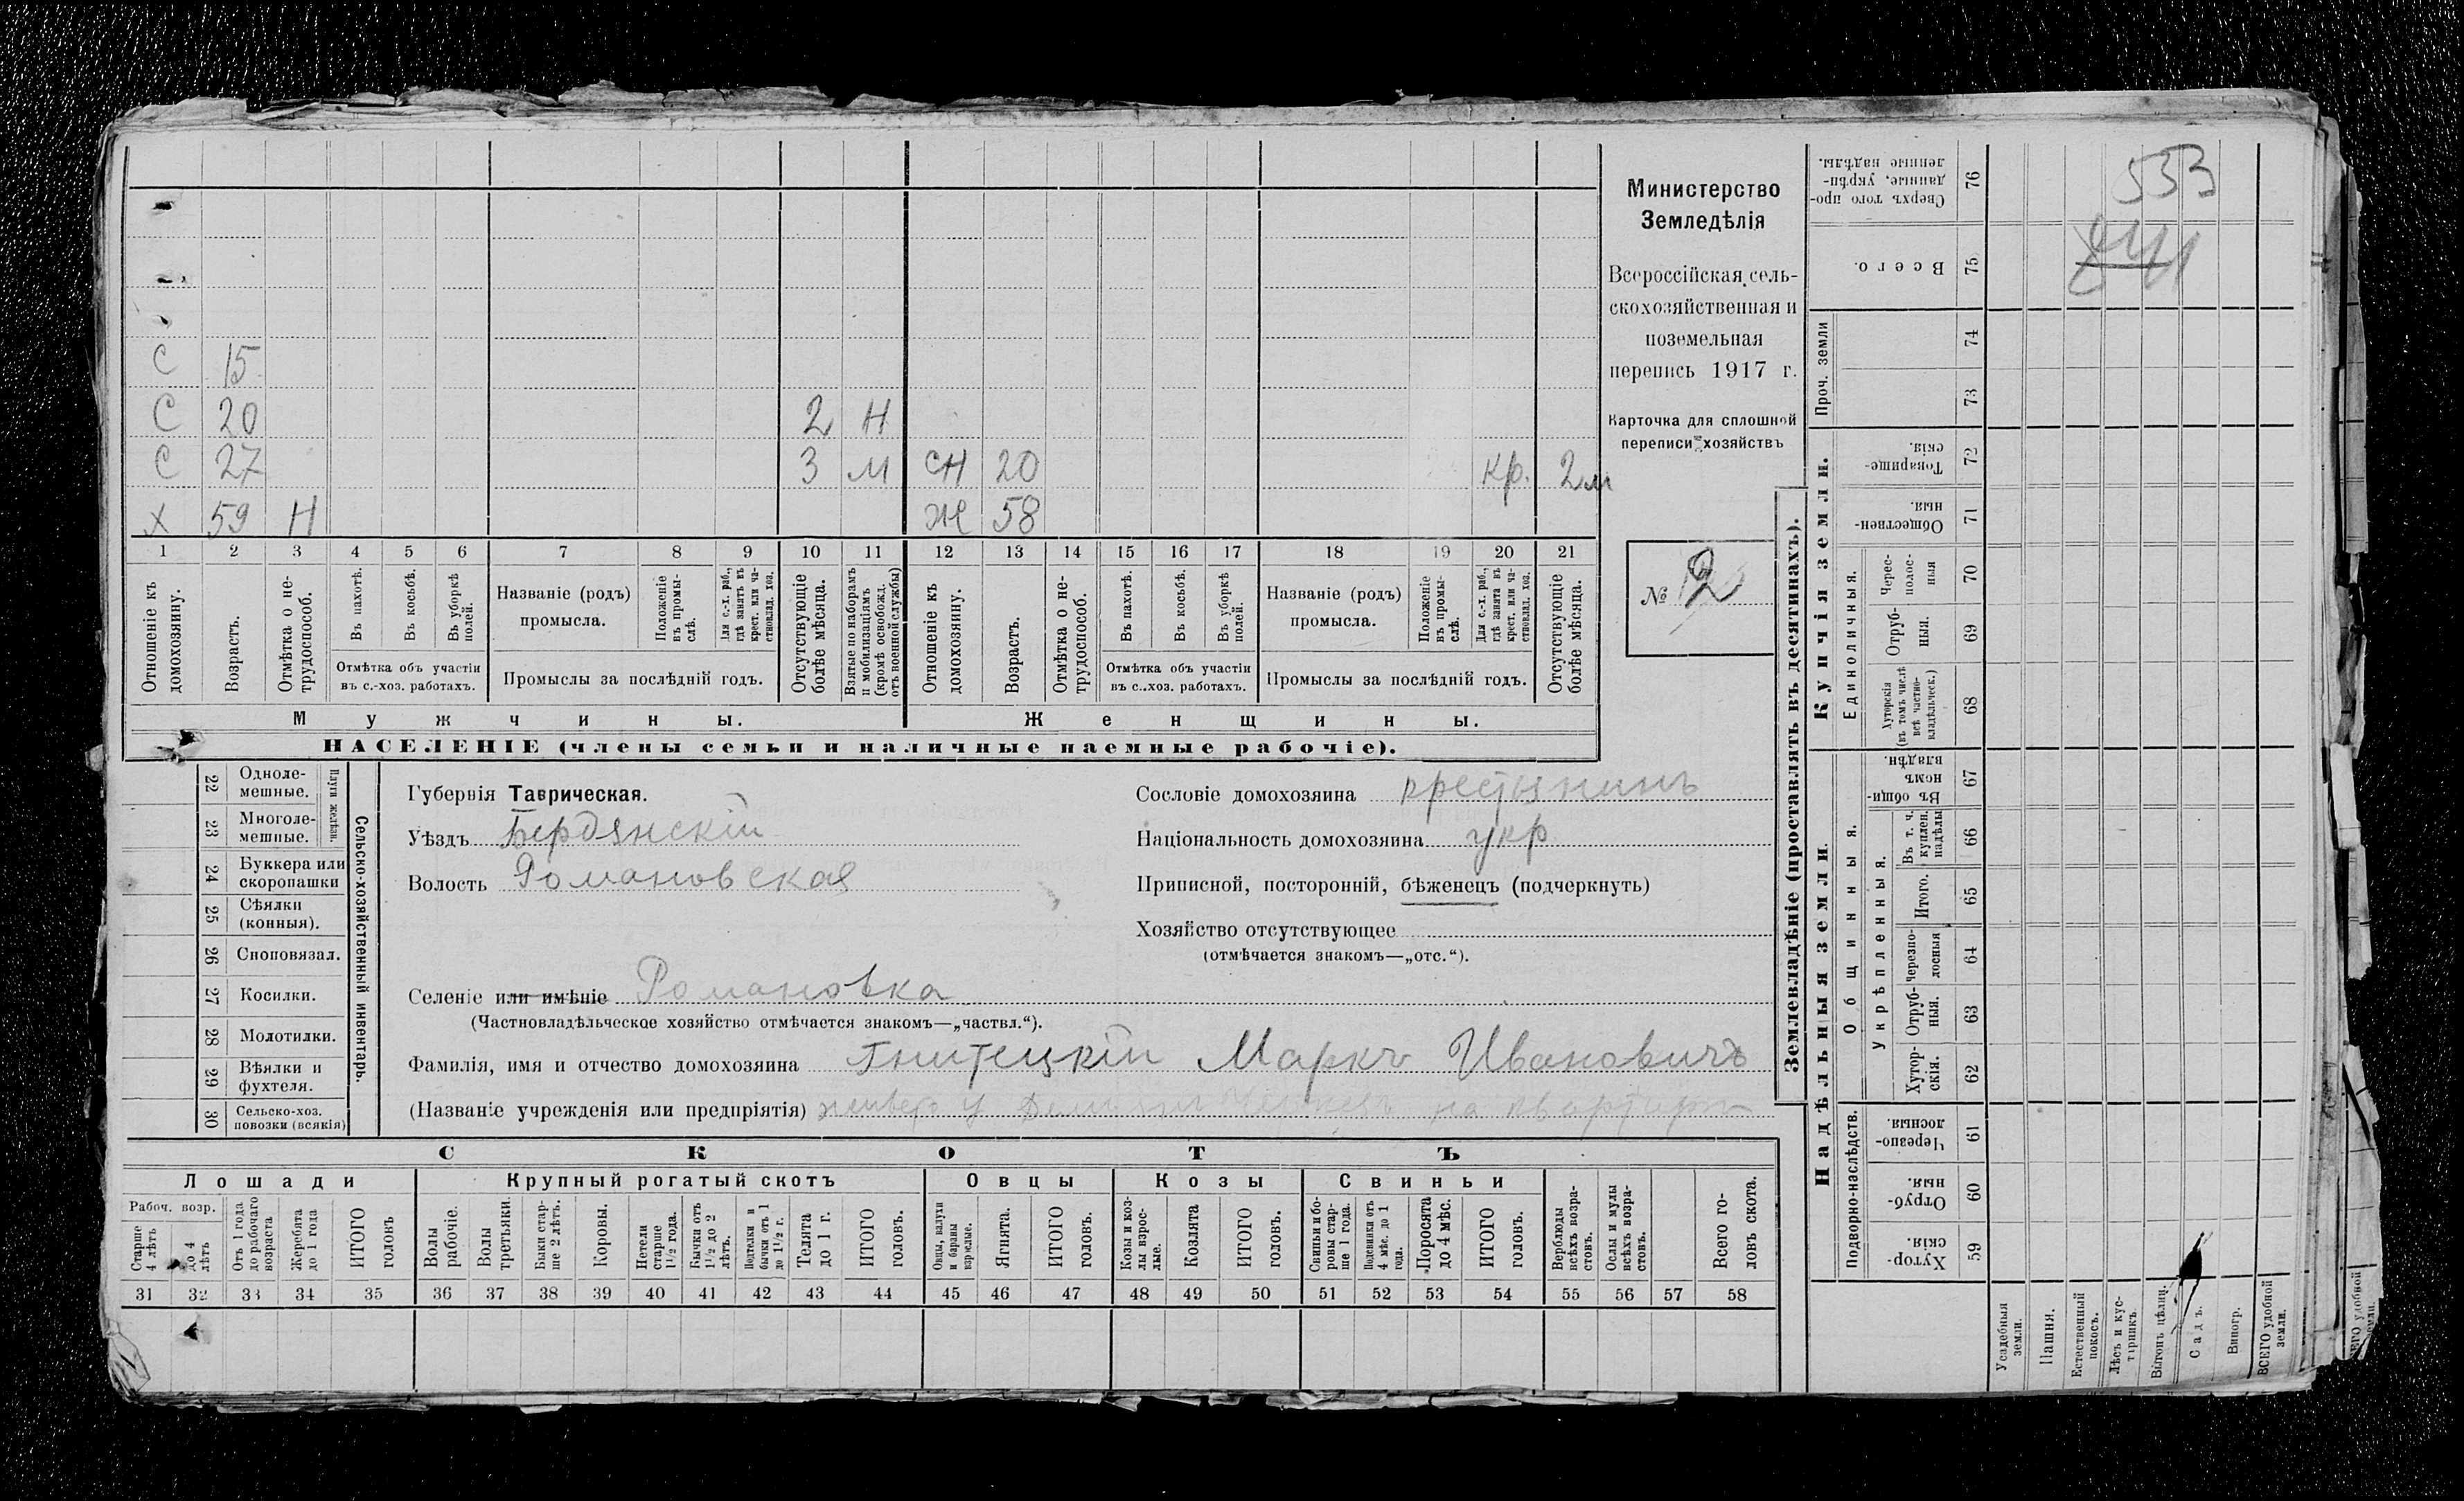 С 15
С 20 2 Н
С 27 3 М СН 20 кр. 2м
Х 59 Н Ж 58
1 2 3 4 5 6 7 8 9 10 11 12 13 14 15 16 17 18 19 20 21
Отношеніе къ домохозяину.
Возрастъ.
Отмѣтка о не-трудоспособ.
Въ пахотѣ.
Въ косьбѣ.
Въ уборкѣ полей.
Отмѣтка объ участіи
въ с.-хоз. работахъ.
Названіе (родъ)
промысла.
Положеніе въ промы-слѣ.
Для с.-х. раб., гдѣ занятъ въ крест. или ча-стновлад. хоз.
Промыслы за послѣдній годъ.
Отсутствующіе болѣе мѣсяца.
Взятые по наборамъ и мобилизаціямъ (кромѣ освобожд. отъ военной службы)
Отношеніе къ домохозяину.
Возрастъ.
Отмѣтка о не-трудоспособ.
Въ пахотѣ.
Въ косьбѣ.
Въ уборкѣ полей.
Отмѣтка объ участіи
въ с.-хоз. работахъ.
Названіе (родъ)
промысла.
Положеніе въ промы-слѣ.
Для с.-х. раб., гдѣ занята въ крест. или ча-стновлад. хоз.
Промыслы за послѣдній годъ.
Отсутствующіе болѣе мѣсяца.
Мужчины. Женщины.
НАСЕЛЕНІЕ (члены семьи и наличные наемные рабочіе).
Министерство
Земледѣлія
Всероссійская сель-
скохозяйственная и
поземельная
перепись 1917 г.
Карточка для сплошной
переписи хозяйствъ
№ 2
22 Одноле-мешные.
23 Многоле-мешные.
Плуги желѣзн.
24 Буккера или скоропашки
25 Сѣялки (конныя).
26 Сноповязал.
27 Косилки.
28 Молотилки.
29 Вѣялки и фухтеля.
30 Сельско-хоз. повозки (всякія)
Сельско-хозяйственный инвентарь.
Губернія Таврическая.
Уѣздъ Бердянскій
Волость Романовская
Сословіе домохозяина крестьянинъ
Національность домохозяина укр
Приписной, посторонній, бѣженецъ (подчеркнуть)
Хозяйство отсутствующее
(отмѣчается знакомъ—„отс.“).
Селеніе или имѣніе Романовка
(Частновладѣльческое хозяйство отмѣчается знакомъ—„частвл.“).
Фамилія, имя и отчество домохозяина Гнитецкій Маркъ Ивановичъ
(Названіе учрежденія или предпріятія) живетъ у на квартирѣ
СКОТЪ
Лошади Крупный рогатый скотъ Овцы Козы Свиньи
Рабоч. возр.
Старше 4 лѣтъ
до 4 лѣтъ
Отъ 1 года до рабочаго возраста
Жеребята до 1 года
ИТОГО головъ
Волы рабочіе.
Волы третьяки.
Быки стар-ше 2 лѣтъ.
Коровы.
Нетели старше 1½ года.
Бычки отъ 1½ до 2 лѣтъ.
Подтелки и бычки отъ 1 до 1½ г.
Телята до 1 г.
ИТОГО головъ.
Овцы, валухи и бараны взрослые.
Ягнята.
ИТОГО головъ.
Козы и коз-лы взрос-лые.
Козлята
ИТОГО головъ.
Свиньи и бо-ровы стар-ше 1 года.
Подсвинки отъ 4 мѣс. до 1 года.
Поросята до 4 мѣс.
ИТОГО головъ.
Верблюды всѣхъ возра-стовъ.
Ослы и мулы всѣхъ возра-стовъ.
Всего го-ловъ скота.
31 32 33 34 35 36 37 38 39 40 41 42 43 44 45 46 47 48 49 50 51 52 53 54 55 56 57 58
Землевладѣніе (проставлять въ десятинахъ).
Купчія земли.
Надѣльныя земли
553
Сверхъ того про-данные, укрѣп-ленные надѣлы. 76
Всего. 75
Проч. земли 74
73
Товарище-скія. 72
Обществен-ныя. 71
Единоличныя.
Черес-полос-ныя 70
Отруб-ныя. 69
Хуторскія (въ томъ числѣ всѣ частно-владѣльческ.) 68
Общинныя.
Въ общи-номъ владѣн. 67
Укрѣпленныя.
Въ т. ч. куплен. надѣлы 66
Итого. 65
Черезпо-лосныя 64
Отруб-ныя. 63
Хутор-скія. 62
Подворно-наслѣдств.
Черезпо-лосныя. 61
Отруб-ныя. 60
Хутор-скія. 59
Усадебныя земли.
Пашня.
Естественный покосъ.
Лѣсъ и кус-тарникъ.
Выгонъ цѣлиц.
Садъ.
Виногр.
ВСЕГО удобной земли.